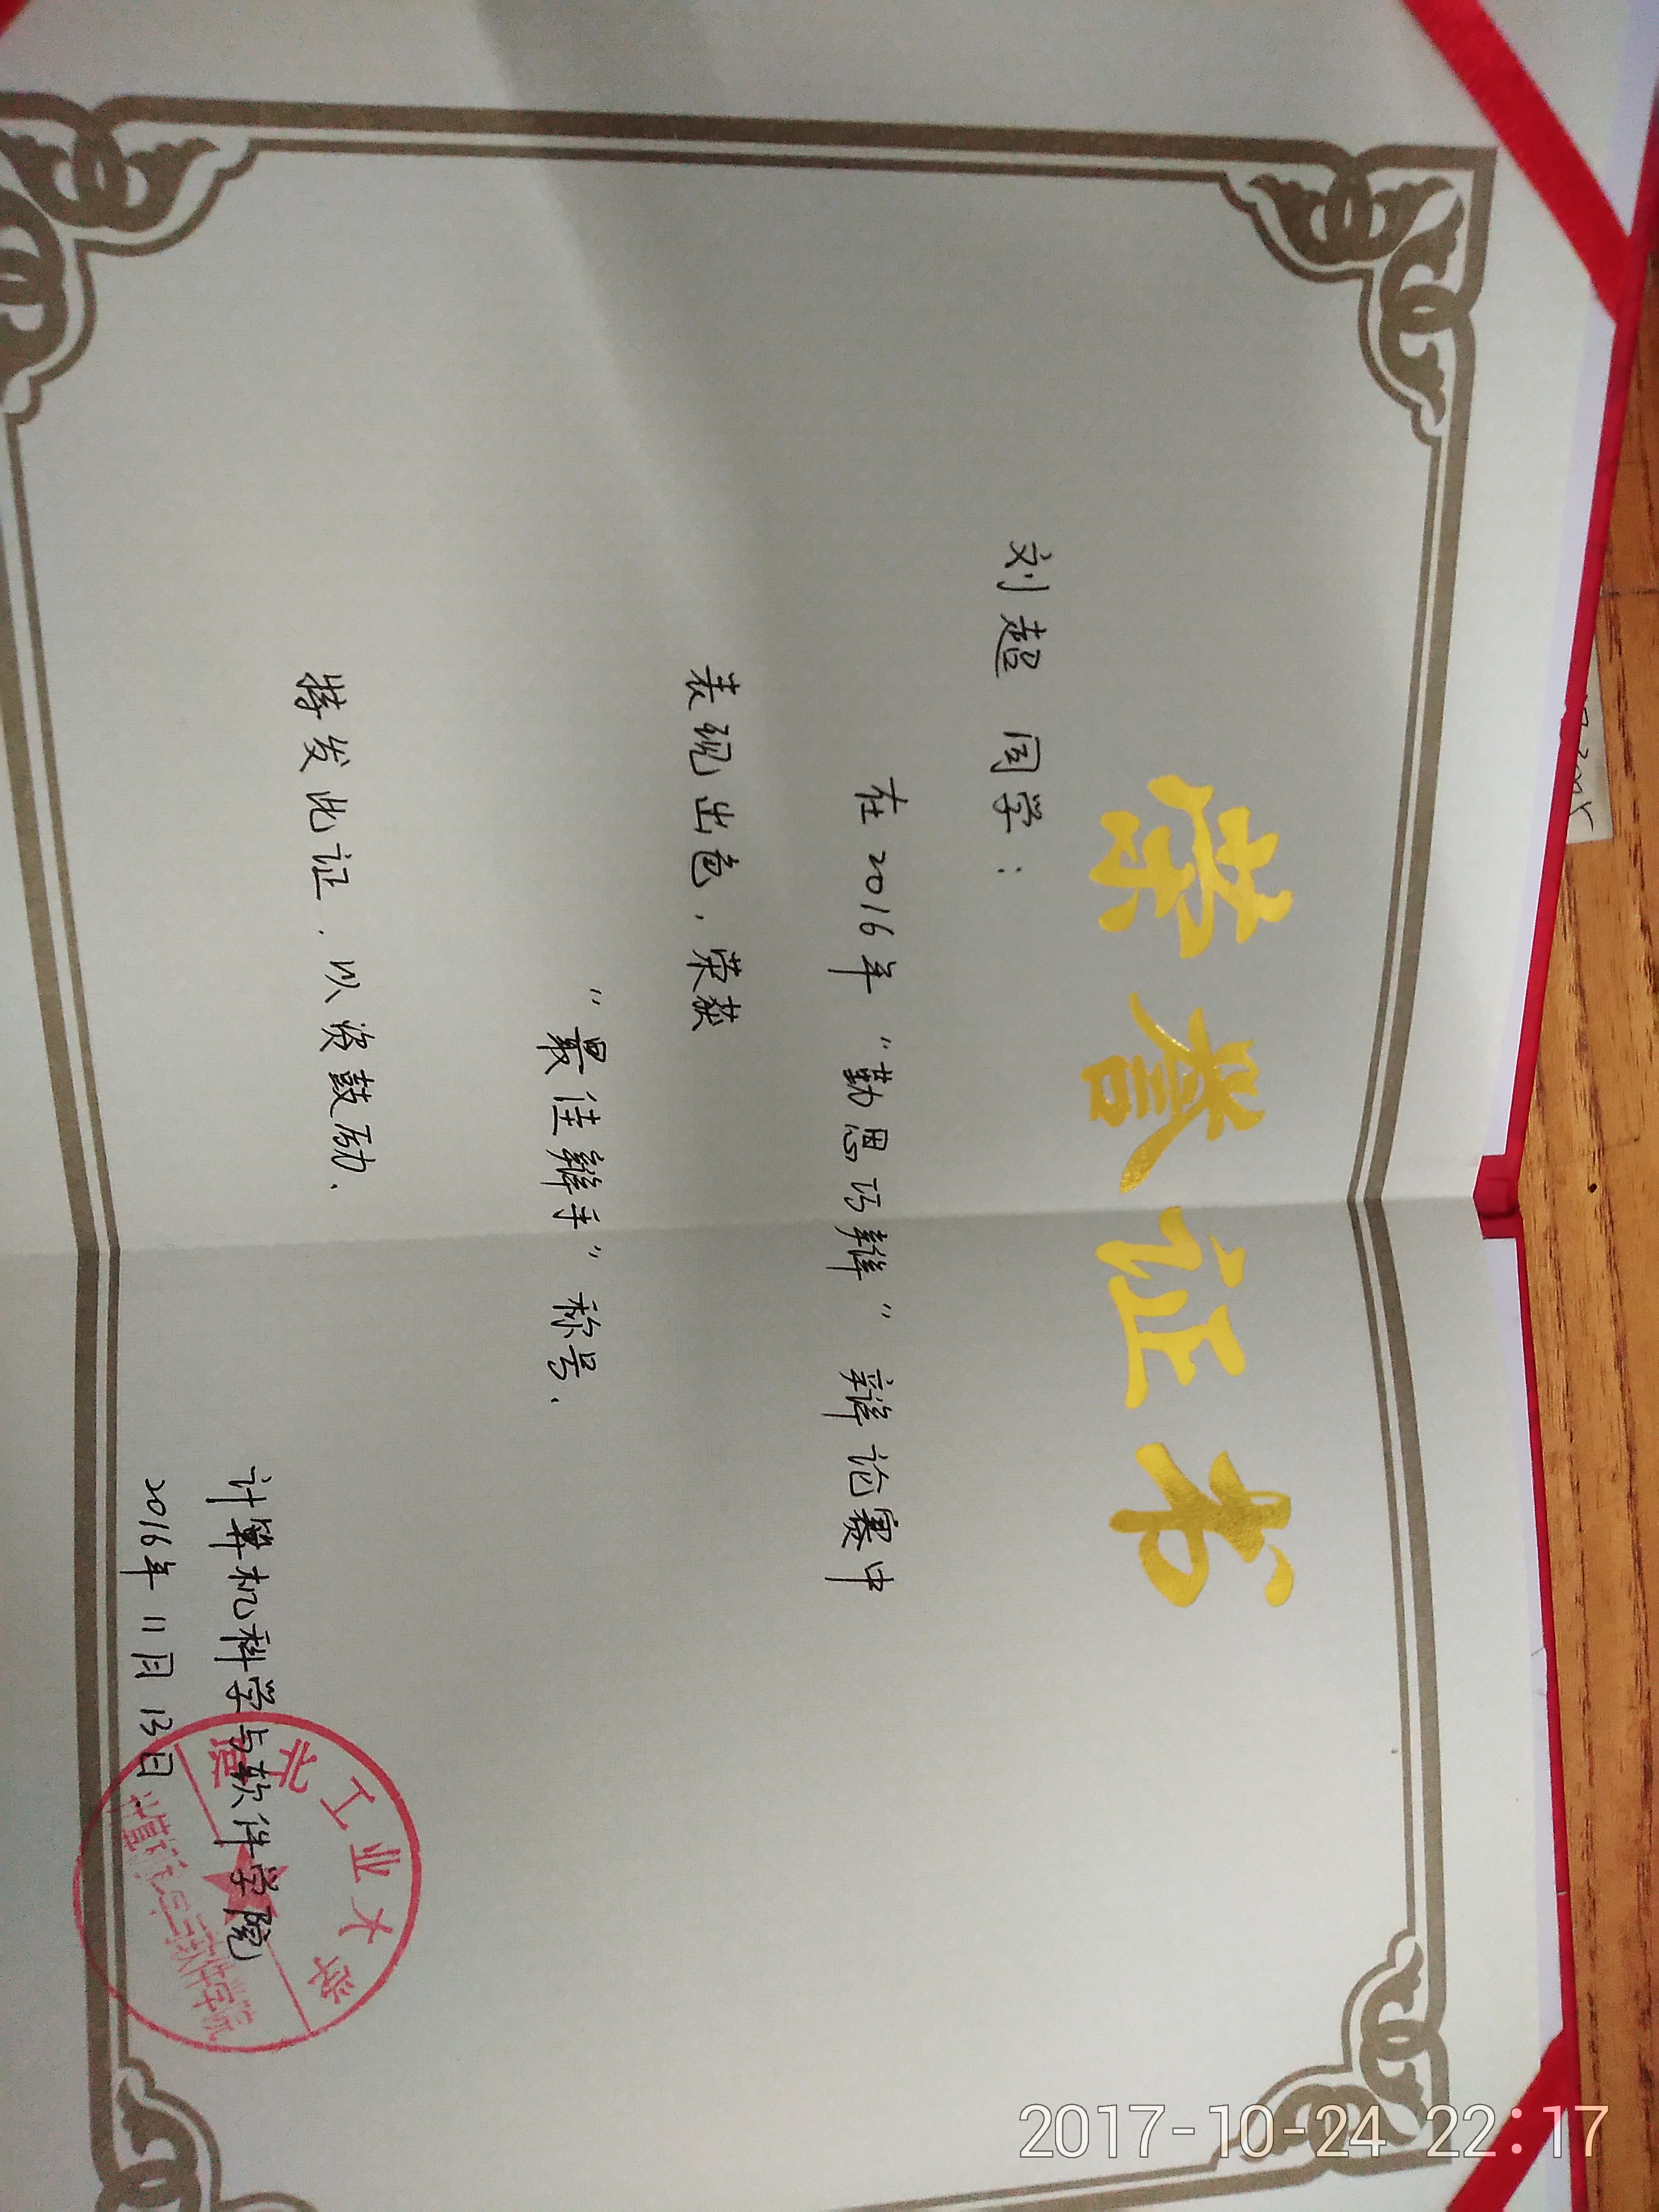 荣誉证书
刘超 同学：
在2016年“勤思巧辩”辩论赛中
表现出色，荣获
“最佳辩手”称号.
特发此证，以资鼓励.
计算机科学与软件学院
2016年11月13日
工业大学
2017-10-24 22:17